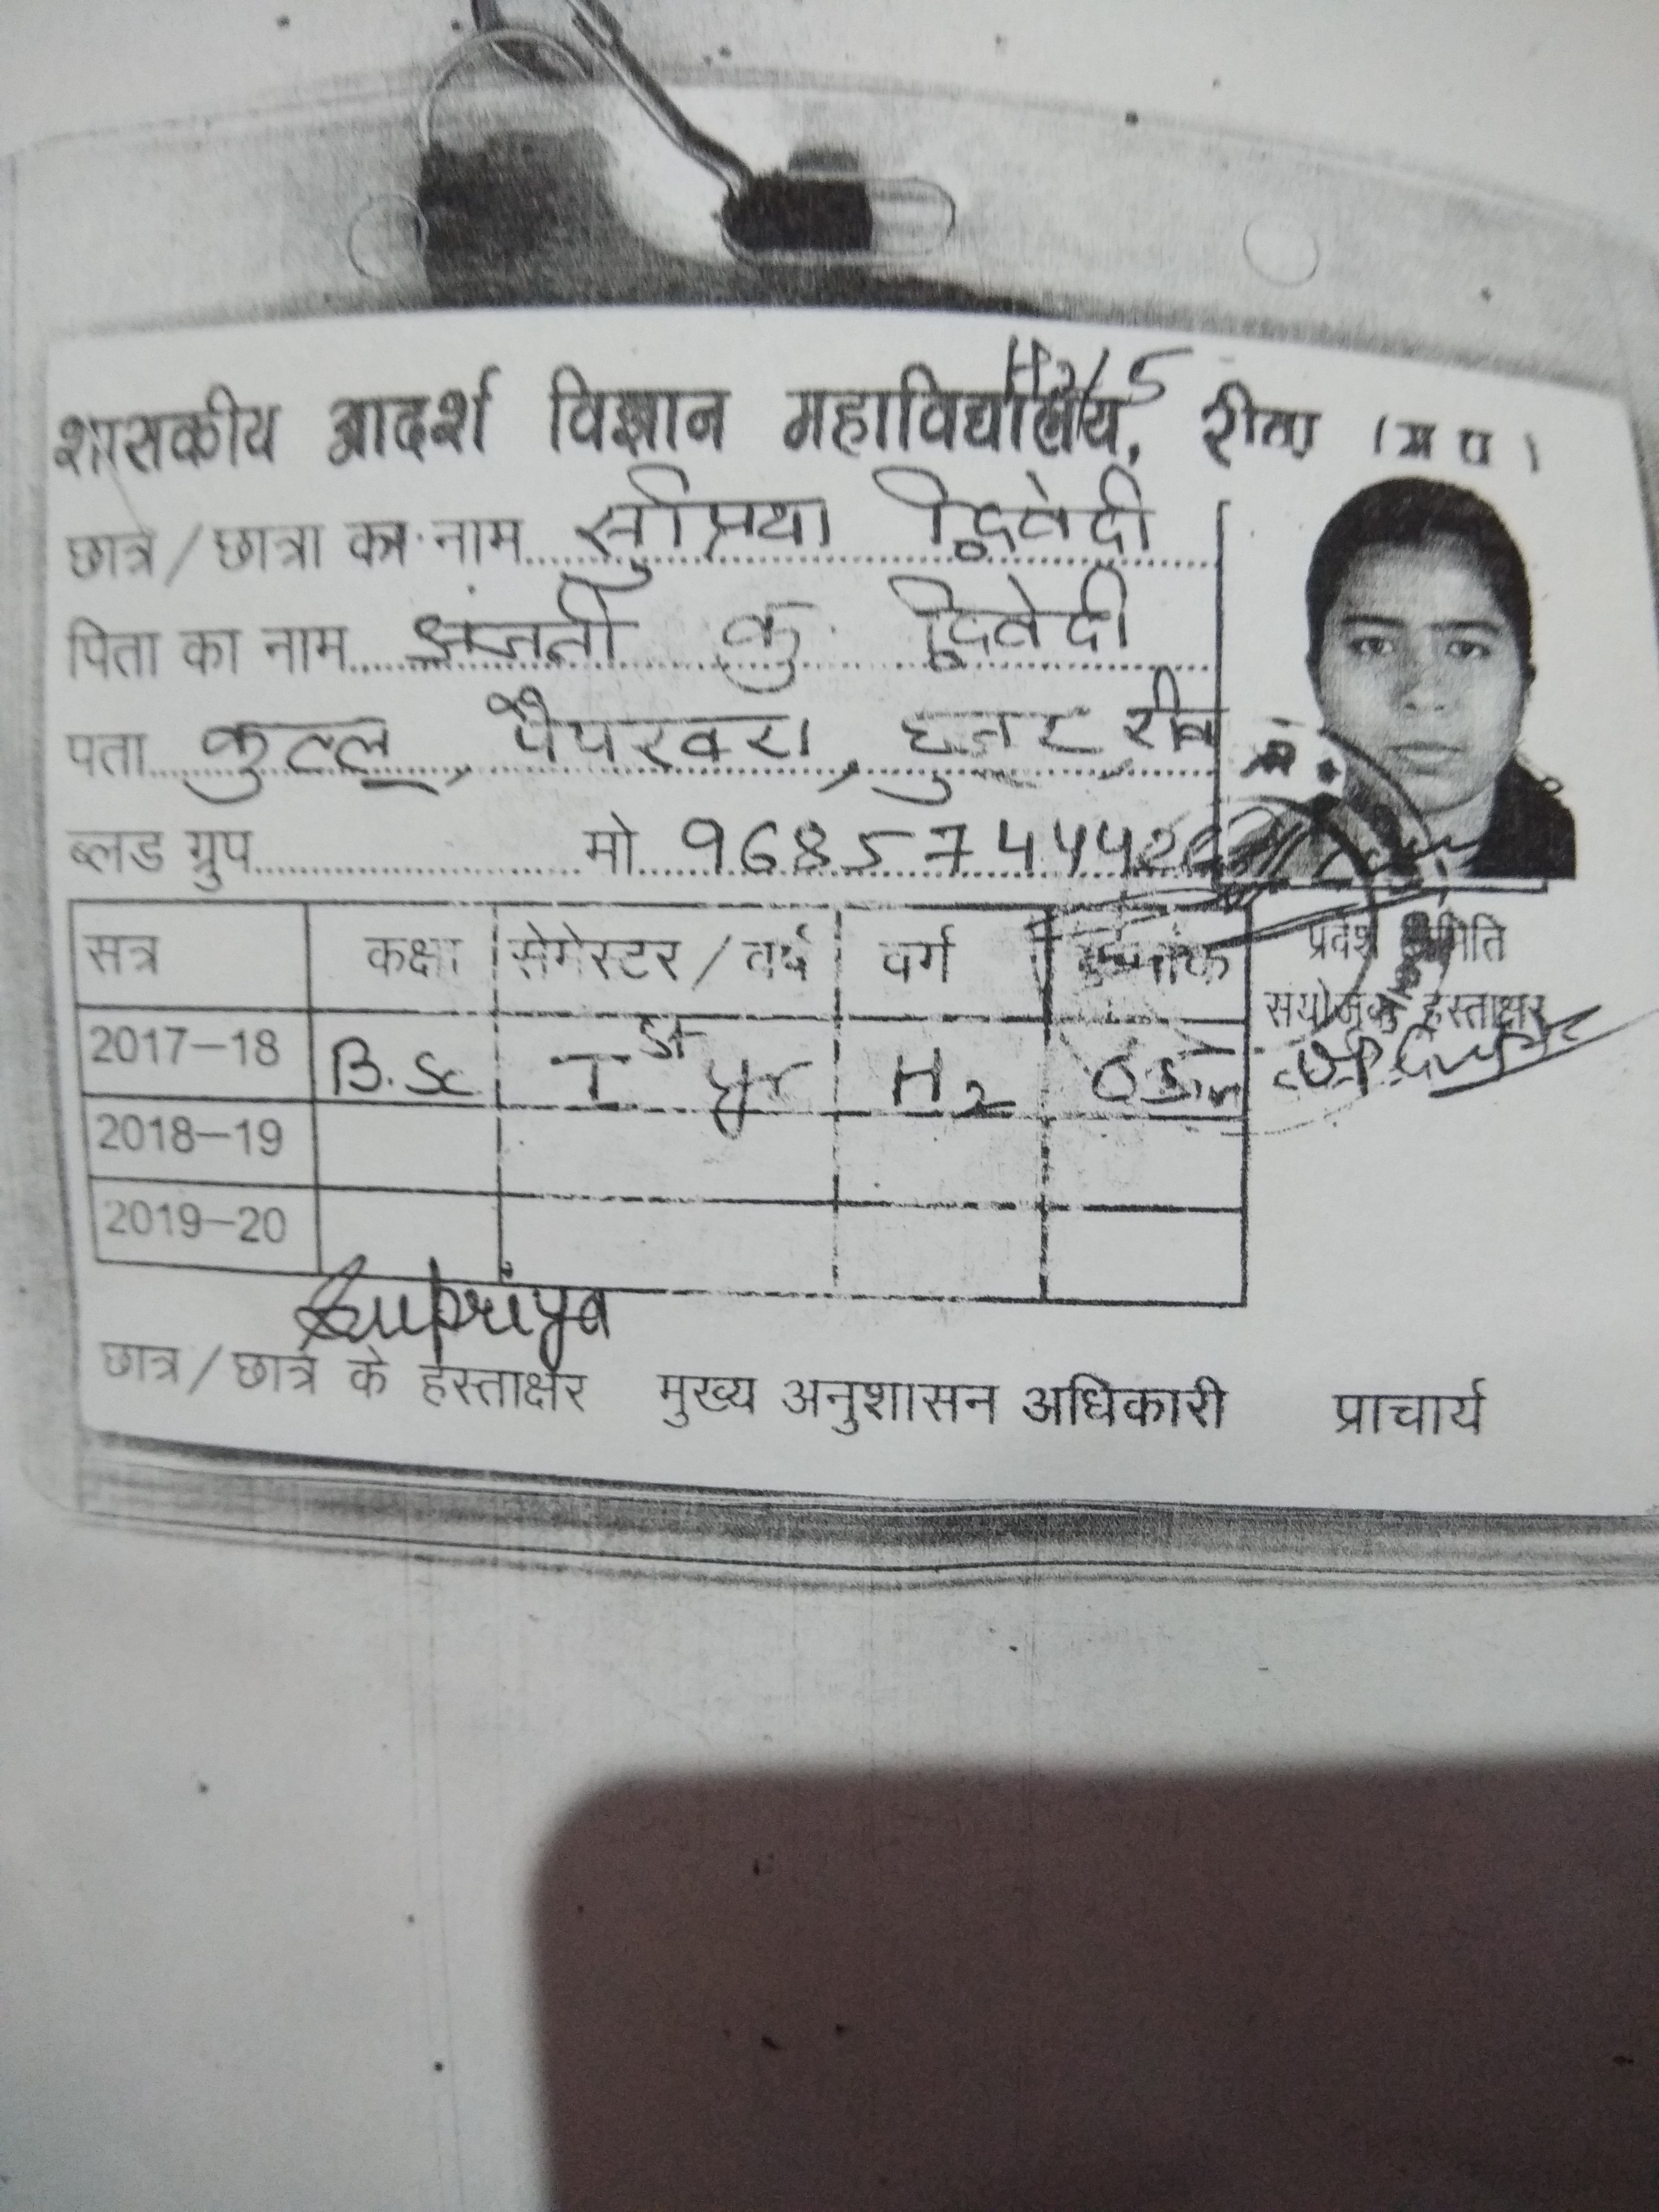 H2/5
शासकीय आदर्श विज्ञान महाविद्यालय, रीवा (म प)
छात्र / छात्रा का नाम सुप्रिया द्विवेदी
पिता का नाम अंजनी कु. द्विवेदी
पता कुल्लू, पैपखरा, हुजूर रीवा
ब्लड ग्रुप मो. 968574442
सत्र कक्षा सेमेस्टर / वर्ष वर्ग क्रमांक
2017–18 B.Sc I st yr H2
2018–19
2019–20
प्रवेश समिति
संयोजक हस्ताक्षर
Supriya
छात्र / छात्र के हस्ताक्षर मुख्य अनुशासन अधिकारी प्राचार्य